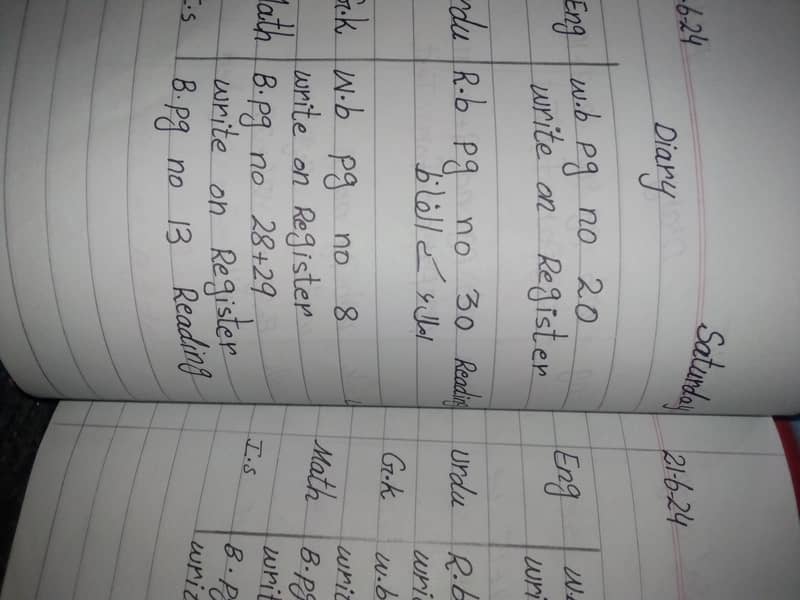 .6.24 Saturday
Diary
Eng W.b pg no 20
write on Register
rdu R.b pg no 30 Reading
املا کے الفاظ
G.k W.b pg no 8
write on Register
Math B.pg no 28+29
write on Register
I.s B.pg no 13 Reading
21-6-24
Eng W.
wri
Urdu R.b
wri
G.k W.b
wri
Math B.pg
writ
I.s B.pg
wri